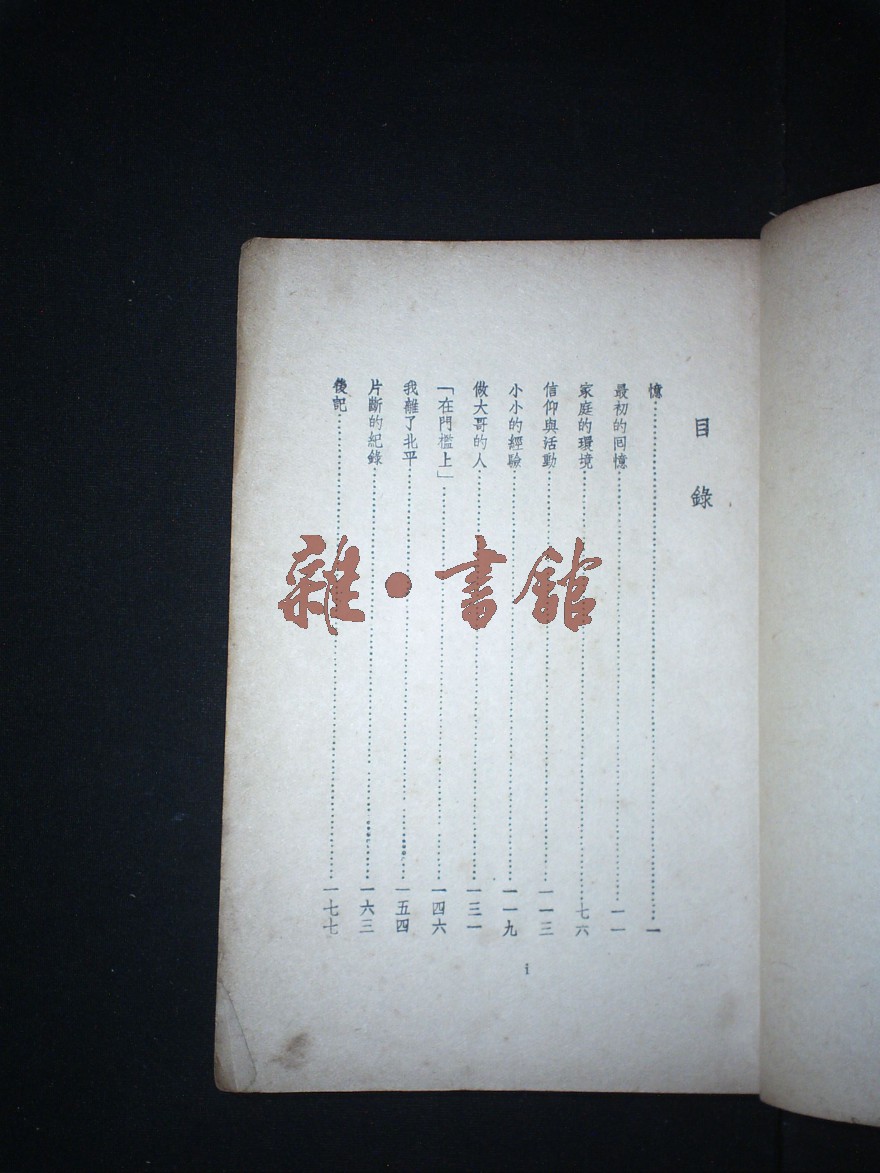 目錄
憶……一
最初的回憶……一一
家庭的環境……七六
信仰與活動……一一三
小小的經驗……一一九
做大哥的人……一三一
「在門檻上」……一四六
我離了北平……一五四
片斷的紀錄……一六三
後記……一七七
i
雜·書館